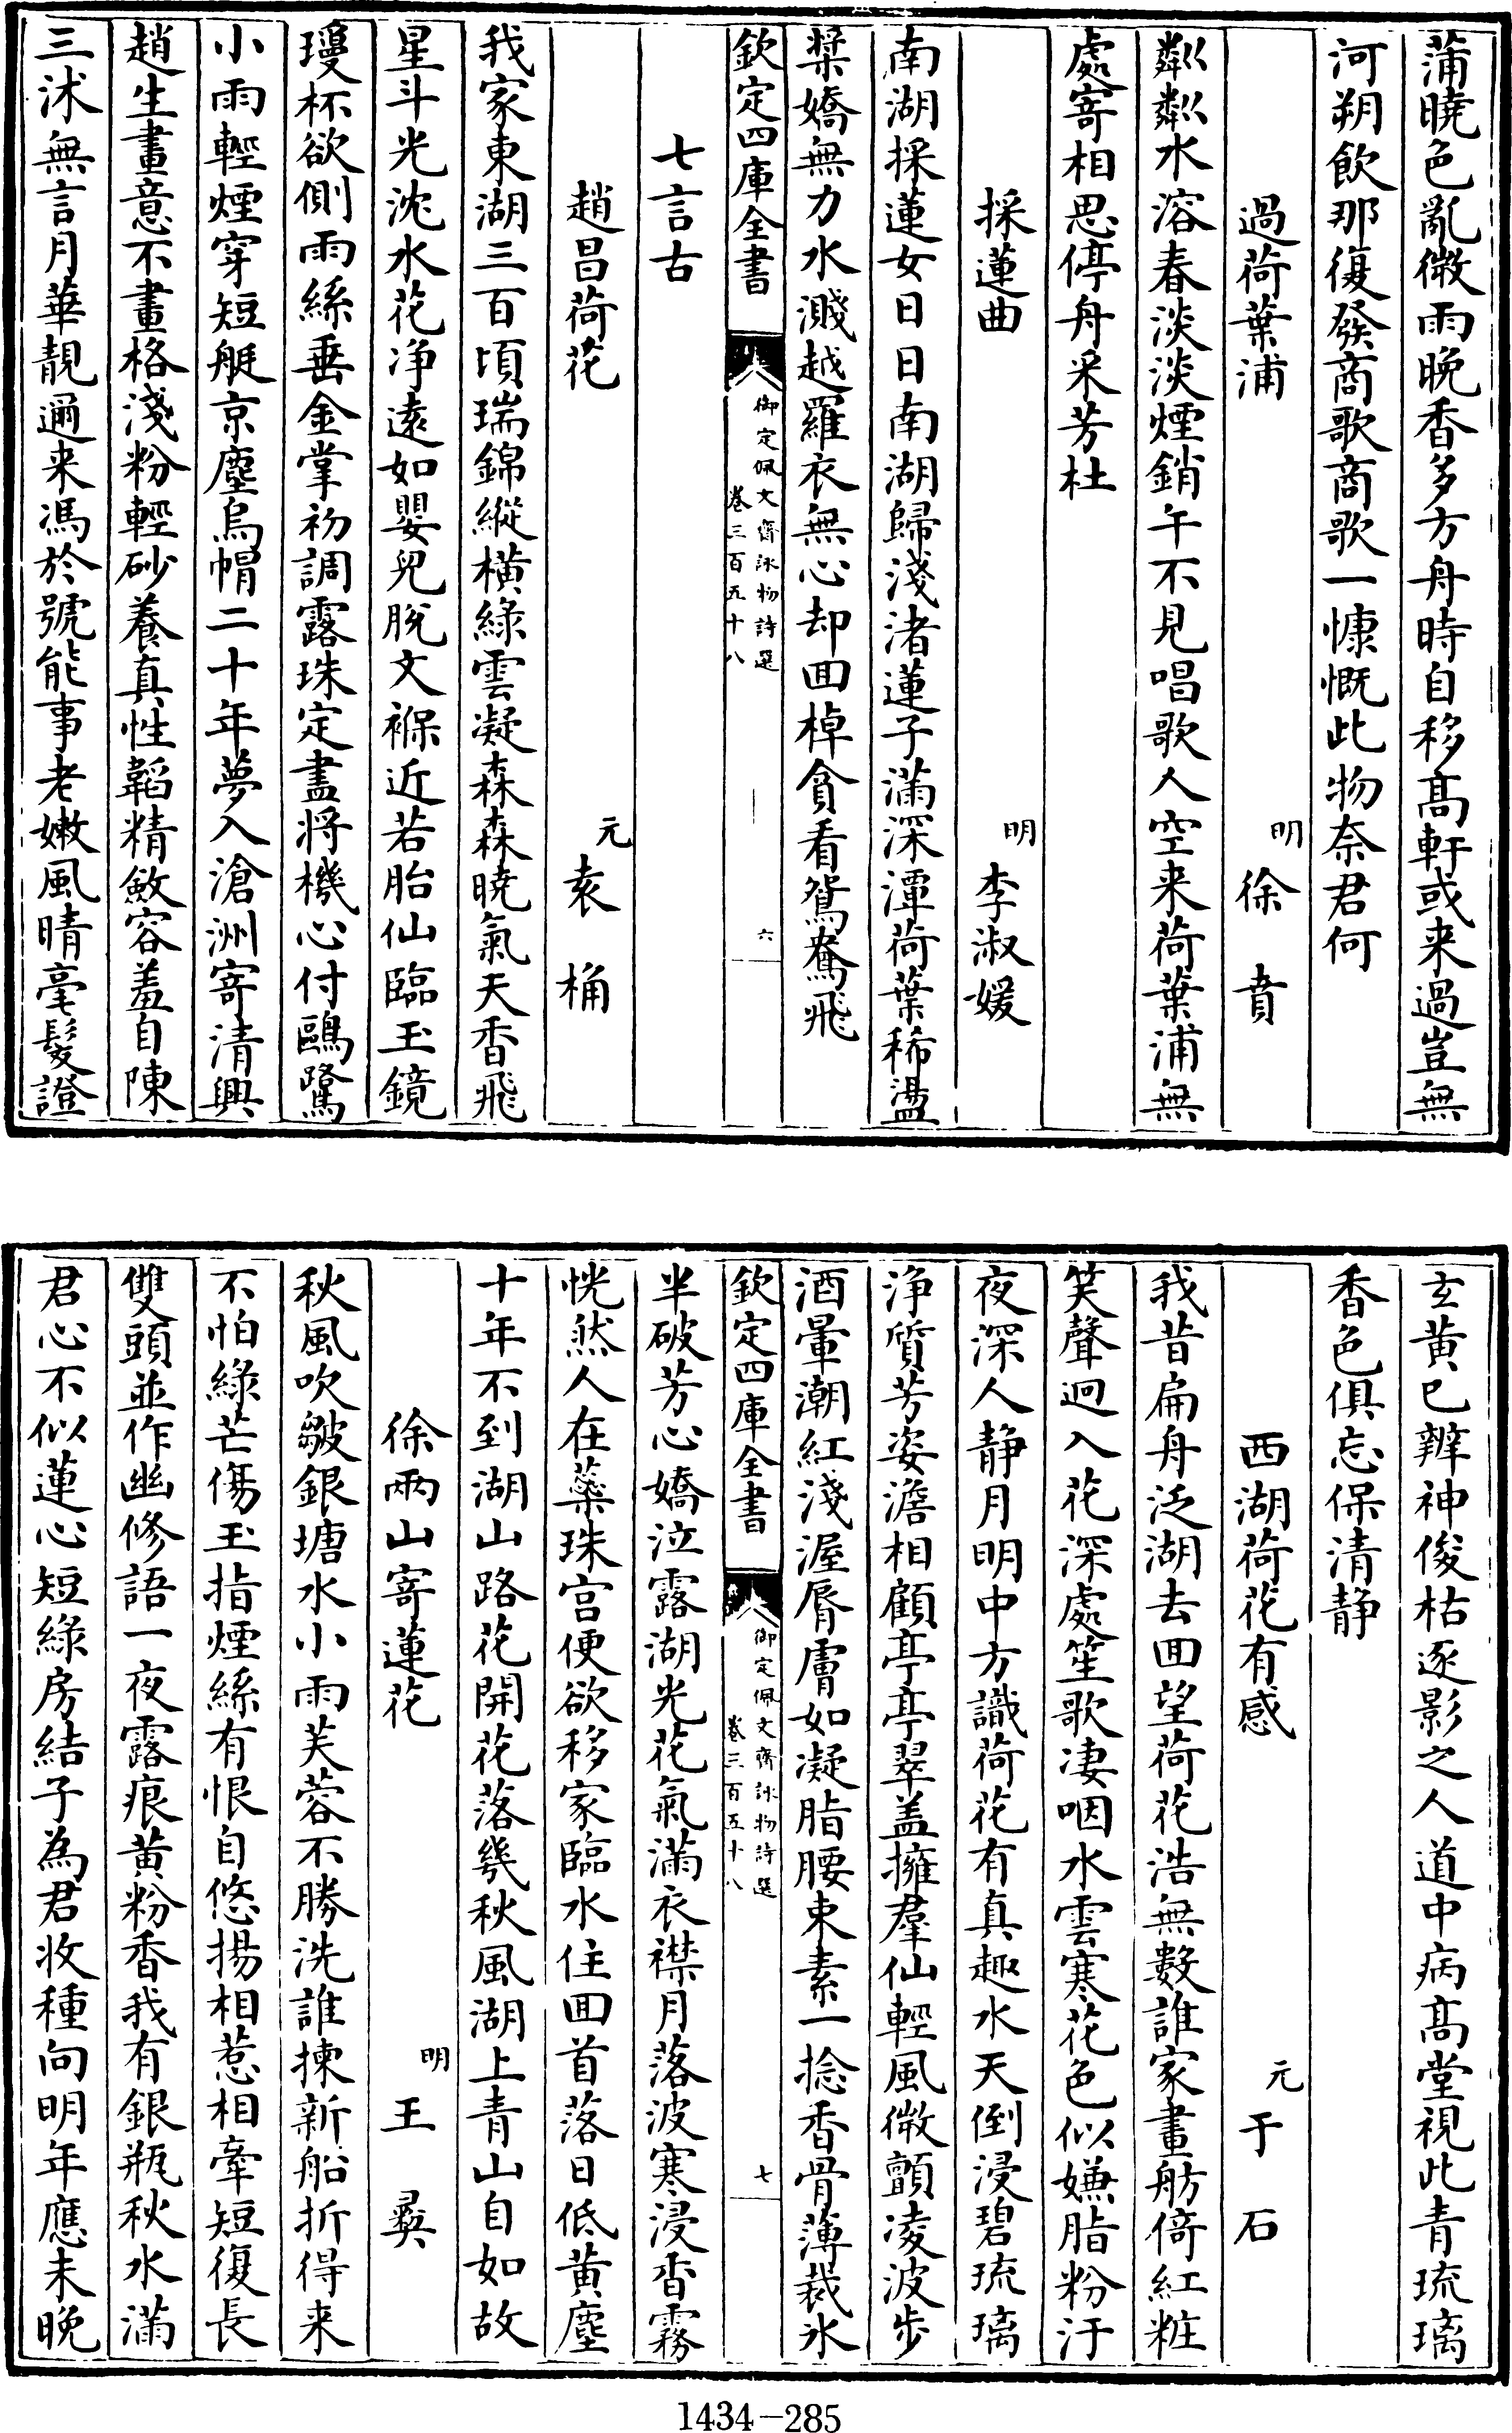 蒲曉色亂微雨晚香多方舟時自移髙軒或来過豈無
河朔飲那復發商歌商歌一慷慨此物奈君何
過荷葉浦
明
徐賁
粼粼水溶春淡淡煙銷午不見唱歌人空来荷葉浦無
處寄相思停舟采芳杜
採蓮曲
明
李淑媛
南湖採蓮女日日南湖歸淺渚蓮子滿深潭荷葉稀盪
槳嬌無力水濺越羅衣無心却囬棹貪看鴛鴦飛
欽定四庫全書
御定佩文齋詠物詩選
卷三百五十八
六
七言古
趙昌荷花
元
袁桷
我家東湖三百頃瑞錦縱横綠雲凝森森曉氣天香飛
星斗光沈水花净逺如嬰兒脫文褓近若胎仙臨玉鏡
瓊杯欲側雨絲垂金掌初調露珠定盡将機心付鷗鷺
小雨輕煙穿短艇京塵烏帽二十年夢入滄洲寄清興
趙生畫意不畫格淺粉輕砂養真性韜精斂容羞自陳
三沐無言月華靚邇来馮於號能事老嫩風晴毫髮證
玄黄已辨神俊枯逐影之人道中病髙堂視此青琉璃
香色俱忘保清静
西湖荷花有感
元
于石
我昔扁舟泛湖去囬望荷花浩無數誰家畫舫倚紅粧
笑聲迥入花深處笙歌凄咽水雲寒花色似嫌脂粉汙
夜深人静月明中方識荷花有真趣水天倒浸碧琉璃
浄質芳姿澹相顧亭亭翠盖擁羣仙輕風微顫凌波步
酒暈潮紅淺渥脣膚如凝脂腰束素一捻香骨薄裁冰
欽定四庫全書
御定佩文齋詠物詩選
卷三百五十八
七
半破芳心嬌泣露湖光花氣滿衣襟月落波寒浸香霧
恍然人在蘂珠宫便欲移家臨水住囬首落日低黄塵
十年不到湖山路花開花落幾秋風湖上青山自如故
徐兩山寄蓮花
明
王彛
秋風吹皺銀塘水小雨芙蓉不勝洗誰揀新船折得来
不怕綠芒傷玉指煙絲有恨自悠揚相惹相牽短復長
雙頭並作幽修語一夜露痕黄粉香我有銀瓶秋水滿
君心不似蓮心短綠房結子為君收種向明年應未晚
1434-285